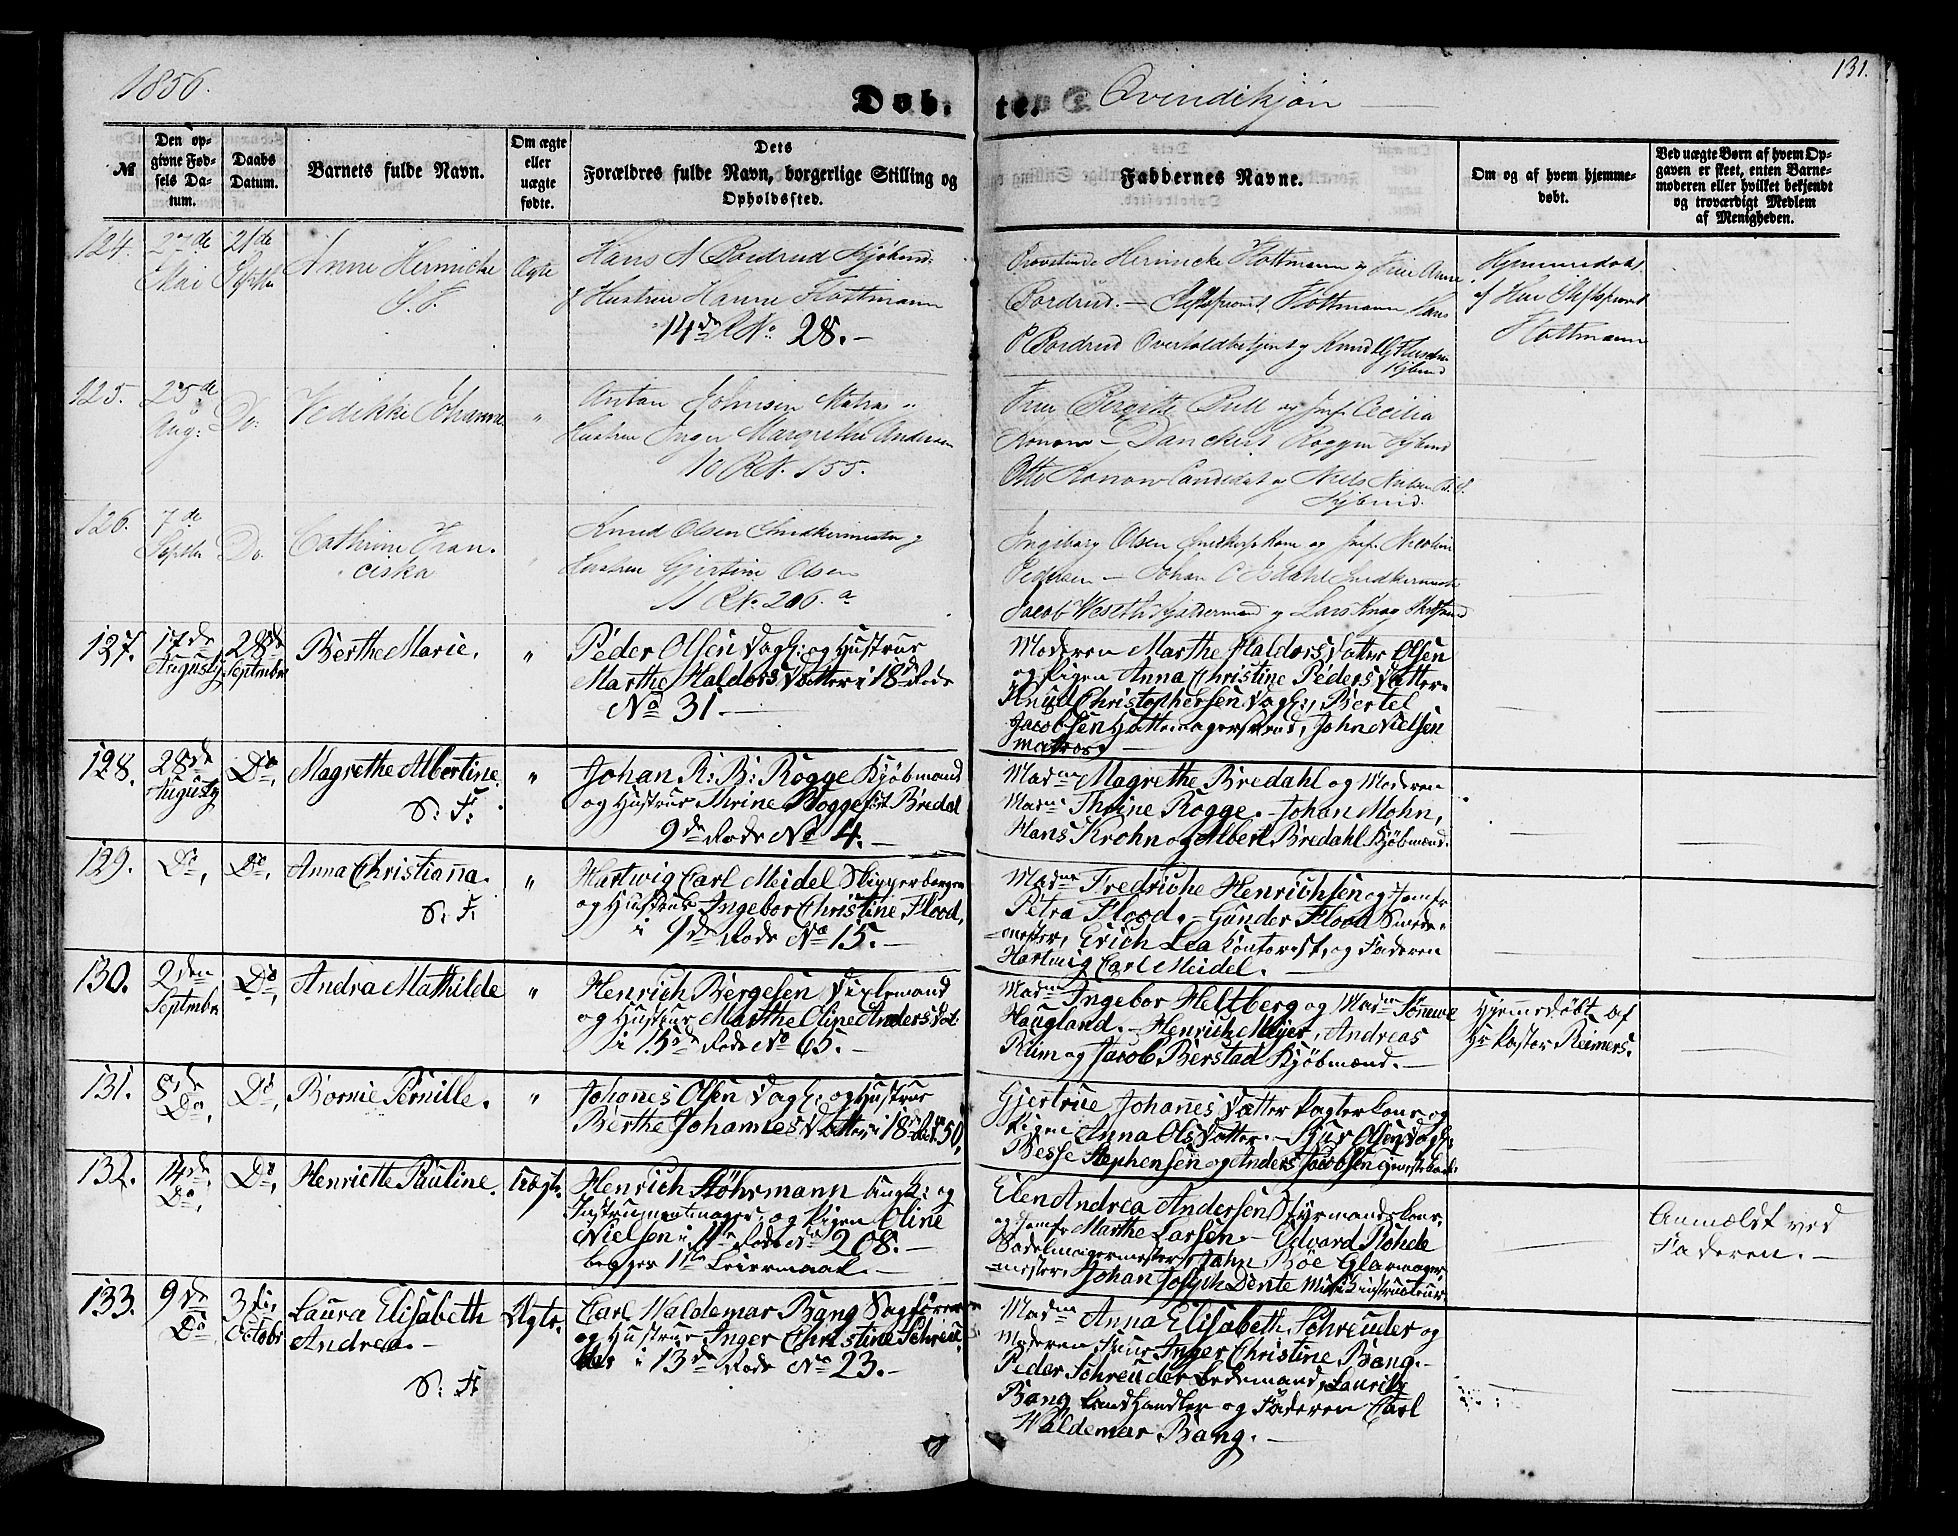 1856.
Døb.
te.
Qvindekjøn
131.
№
Den op-
givne Fød-
sels Da-
tum.
Daabs
Datum.
Barnets fulde Navn.
Om ægte
eller
uægte
fødte.
Dets
Forældres fulde Navn, borgerlige Stilling og
Opholdssted.
Faddernes Navne.
Om og af hvem hjemme-
døbt.
Ved uægte Børn af hvem Op-
gaven er skeet, enten Barne-
moderen eller hvilket bekjendt
og troværdigt Medlem
af Menigheden.
124.
27de
Mai
21de
Septbr
Anne Hermicke
S. F.
Ægte
Hans A Bordrud Kjøbmd.
Hustru Hanne Kottmann
14de R No. 28.
Provstinde Hermicke Kottmann og Frue Anne
Bordrud. — Stiftsprovst Kottmann Hans
P Bordrud Overtoldbetjent og Knud
Kjbmd
Hjemmedøbt
af Hr Stiftsprovst
Kottmann
125.
25de
Aug:
Do.
Vedikke Johanne
"
Anton Johnsen Matros
Hustru Inger Margrethe Andersen
10 R No. 155.
Frue Birgitte Bull og Jmf. Cecilia
Konow — Danckert Kjbmd
Otto Konow Candidat og Niels Nielsen
Kjbmd.
126.
7de
Septbr
Do
Cathrine Fran-
ciska
"
Knud Olsen Snedkermester
Hustru Gjertine Olsen
11 R No. 206.a
Ingeborg Olsen og Jmf. Nicoline
Pedersen — Johan C Isdahl Snedkermester
Jacob og Lars Knag
127.
17de
Augusty
28de
Septmbr
Berthe Marie.
"
Peder Olsen Dagl: og Hustrue
Marthe Haldors Datter i 18de Rode
No 31.
Moderen Marthe Haldors Datter Olsen
og Pigen Anna Christine Peders Datter
Knud Christophersen Dagl:, Bertel
Jacobsen Hattemagersvend, John Nielsen
Matros,
128.
28de
Augusty
Do,
Magrethe Albertine.
S. F.
"
Johan R: B: Rogge Kjøbmand
og Hustrue Thrine Rogge født Bredal
9de Rode No 4.
Madme Magrethe Bredahl og Moderen
Madme Thrine Rogge. Johan Mohn,
Hans Krohn og Albert Bredahl Kjøbmænd.
129.
Do,
Do,
Anna Christianna.
S. F.
"
Hartwig Carl Meidel Skipperborger
og Hustrue Ingebor Christine Flood,
i 9de Rode No 15.
Madme Fredriche Henrichsen og Jomfr
Petra Flood. Gunder Flood Smede-
mester, Erich Lea Kontorist, og Faderen
Hartwig Carl Meidel.
130.
2den
Septmbr
Do
Andrea Mathilde
"
Henrich Bergesen
og Hustrue Marthe Oline Anders Dat
i 15de Rode No 65.
Madme Ingebor Heltberg og Madme Tønnese
Haugland. Henrich Meyer, Andreas
Riim og Jacob Berstad Kjøbmænd.
Hjemmedøbt af
Hr Pastor Reimers.
131.
5de
Do,
Do,
Bornie Pernille.
"
Johannes Olsen Dagl: og Hustrue
Berthe Johannes Datter i 18de Rode 50,
Gjertrue Johannes Datter og
Pigen Anna Ols Datter. Sjur Olsen Dagl:
Besse Stephensen og Anders Jacobsen
132.
14de
Do,
Do,
Henriette Pauline.
Uægte.
Henrich Støhrmann Ungk: og
Instrumentmager, og Pigen Oline
Nielsen i 11te Rode No 208.
begges 1ste Leiermaal.
Elen Andrea Andersen Styrmandskone,
og Jomfr Marthe Larsen. Edvard Rohde
Sadelmagermester, Jahn Böe Glarmager-
mester, Johan Joseph Dente Musikinstructeur.
Anmældt ved
Faderen.
133.
9de
Do
3die
Octobr
Laura Elisabeth
Andrea.
S. F.
Ægte.
Carl Waldemar Bang Sagfører
og Hustrue Inger Christine Schreu-
der i 13de Rode No 23.
Madme Anna Elisabeth Schreuder og
Moderen Frue Inger Christine Bang.
Peder Schreuder Lodsmand, Lauritz
Bang Landhandler og Faderen Carl
Waldemar Bang.